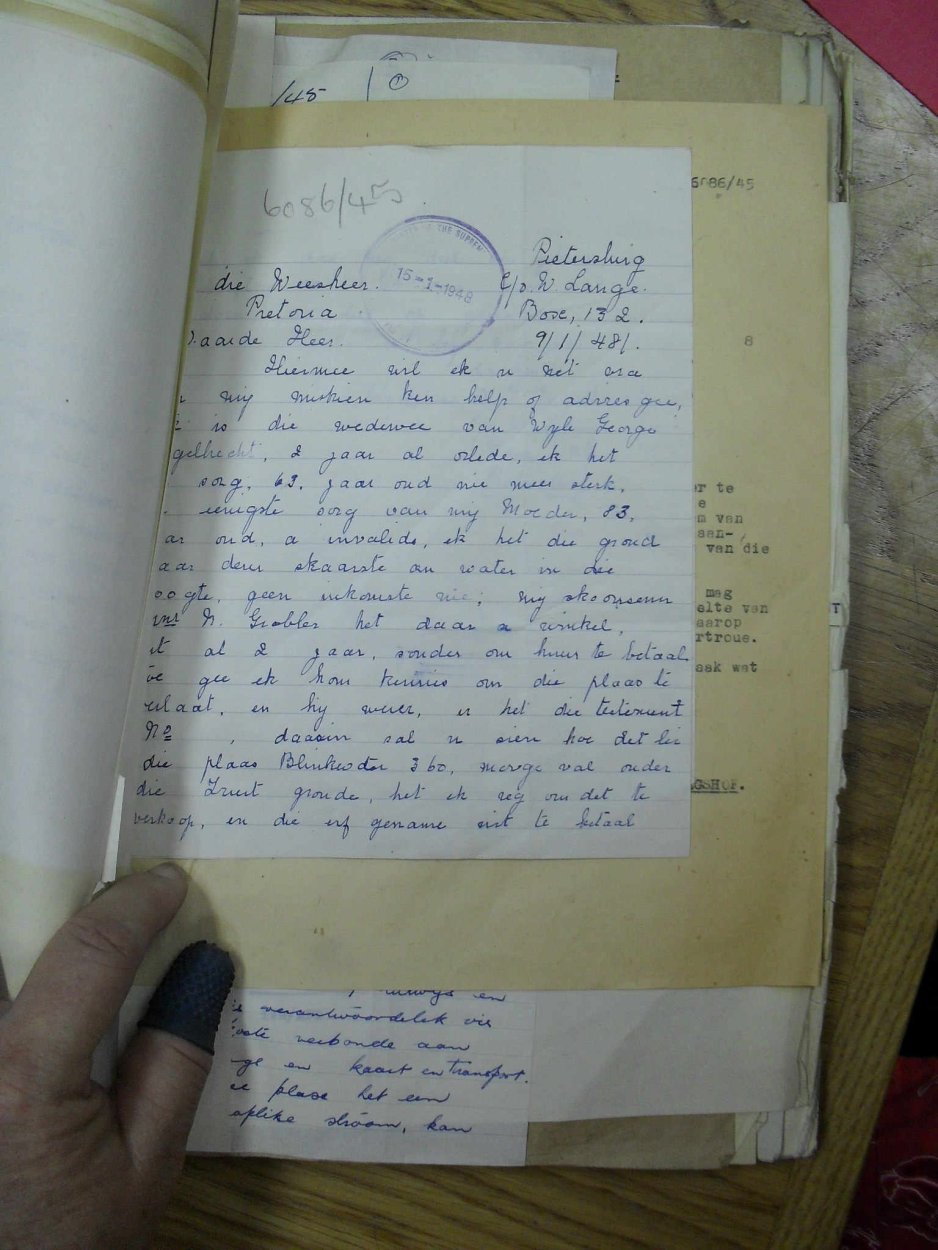 /45
1
6086/45
6086/45
THE SUPREME
15-1-1948
Pietersburg
die Weesheer. C/o. W. Lange.
Pretoria. Box, 132.
Waarde Heer. 9/1/48/.
8
Hiermee wil ek u net vra
my miskien ken help of advies gee,
is die wedewee van Wyle George
gelbrecht, 2 jaar al oorlede, ek het
sorg, 63, jaar oud nie meer sterk,
eenigste sorg van my Moeder, 83,
ar oud, a invalide, ek het die grond
aar deur skaarste an water in die
oogte, geen inkomste nie; my skoonseun
N. Grobler het daar a winkel,
t al 2 jaar, sonder om huur te betaal
gee ek hom kennis om die plaas te
erlaat, en hy weier, u het die testement
No , daarin sal u sien hoe det lê
die plaas Blinkwater 360, morge val onder
die Trust gronde, het ek reg om det te
verkoop, en die erf gename uit te betaal
er te
e
m van
aan-,
van die
mag
elte van
aarop
rtroue.
aak wat
GSHOF.
T
en
verantwoordelik vir
verbonde aan
en kaart en transport.
plase het een
stroom, kan